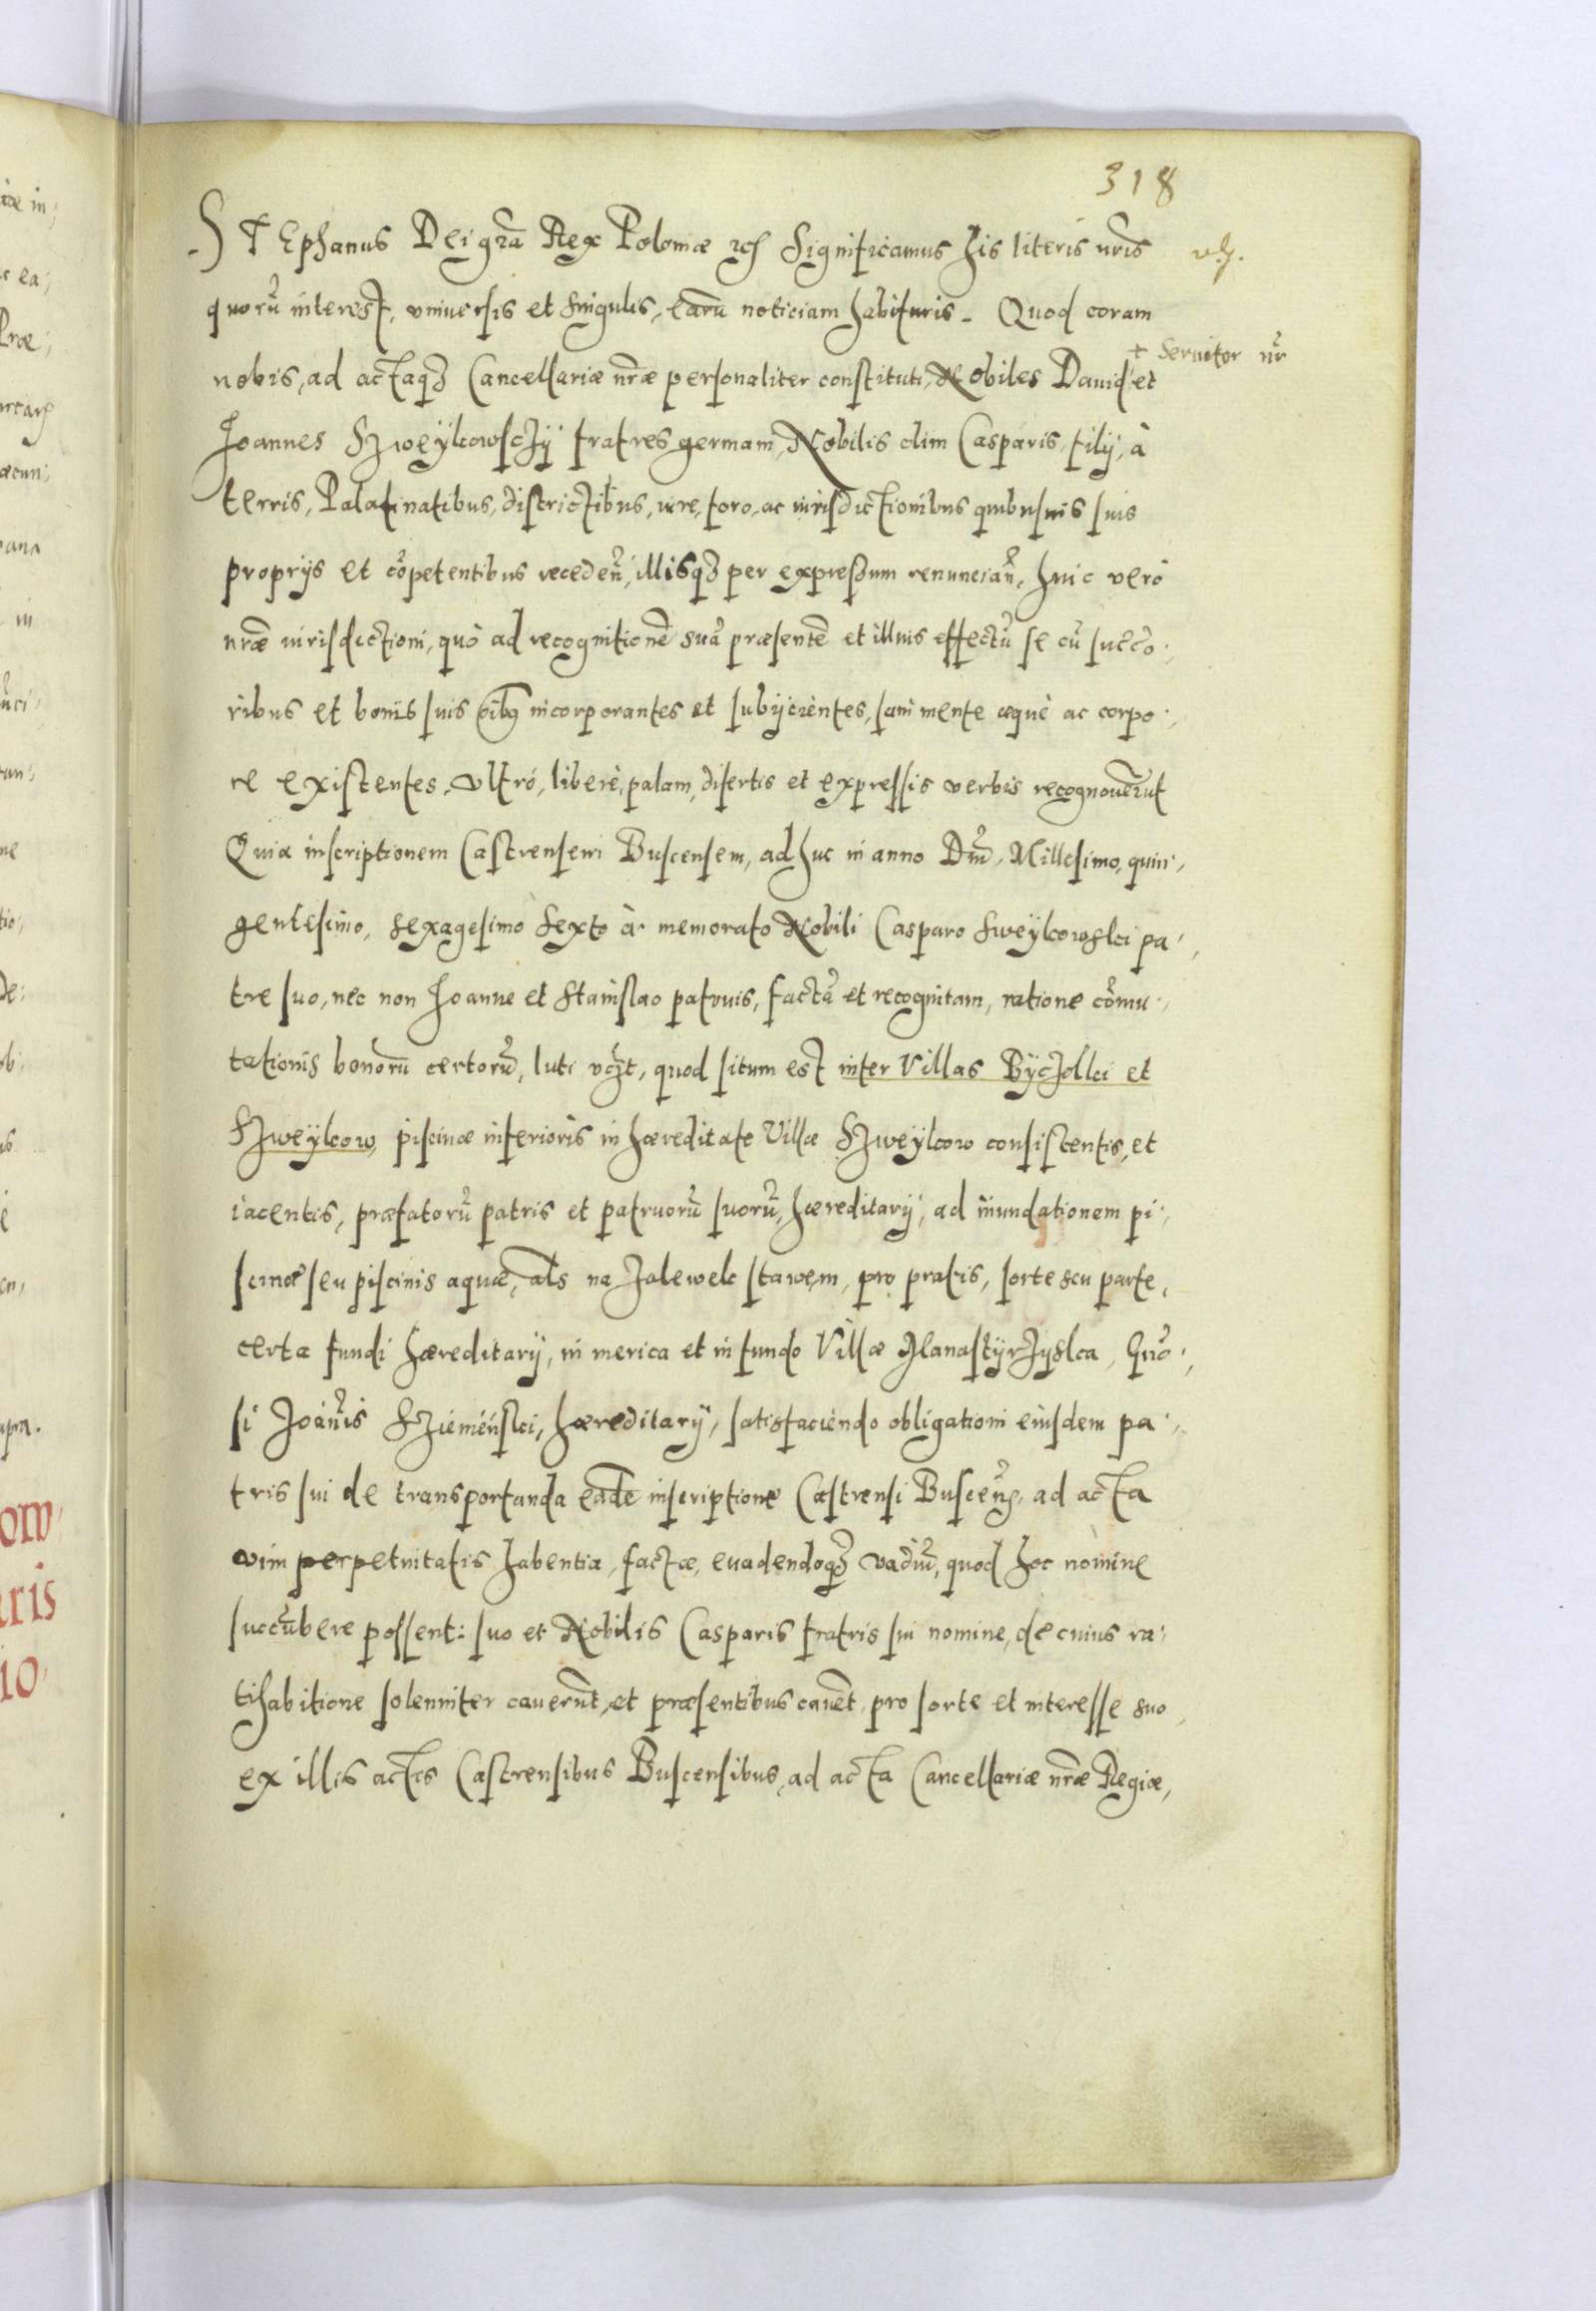 318
STEphanus Dei gra Rex Poloniæ Significamus his literis nris
quorũ interest, vniuersis et singulis, earũ noticiam habituris. Quod coram
+ Seruitor nr
nobis, ad actaqꝫ Cancellariæ nræ personaliter constituti, Nobiles Dauid et
Joannes Szweÿkowsczÿ fratres germani, Nobilis olim Casparis filij, à
terris, Palatinatibus, districtibus, iure, foro, ac iurisdictionibus quibusuis suis
proprijs et cõpetentibus receden, illisqꝫ per expressum renuncian, huic verò
nræ iurisdictioni, quò ad recognitionẽ suã præsentẽ et illius effectũ se cũ succo:
ribus et bonis suis oibꝫ incorporantes et subijcientes, sani mente æquè ac corpo:
re existentes, vltrò, liberè, palam, disertis et expressis verbis recognouerũt
Quia inscriptionem Castrensem Buscensem, adhuc in anno Dni, Millesimo, quin:
gentesimo, sexagesimo sexto à memorato Nobili Casparo Sweÿkowski pa:
tre suo, nec non Joanne et Stanislao patruis, factã et recognitam, ratione cõmu:
tationis bonorũ certorũ, luti vczt, quod situm est inter Villas Bÿczolki et
Szweÿkow, piscinæ inferioris in hæreditate Villæ Szweÿkow consistentis, et
iacentis, præfatorũ patris et patruorũ suorũ, hæreditarij, ad inundationem pi:
scinæ seu piscinis aquæ, als na zalewek stawem, pro pratis, sorte seu parte,
certa fundi hæreditarij, in merica et in fundo Villæ Manastÿrzÿska, Gno:
si Joãnis Sziemiński, hæreditarij, satisfaciendo obligationi eiusdem pa:
tris sui de transportanda eadẽ inscriptione Castrensi Buscen, ad acta
vim perpetuitatis habentia, factæ, euadendoqꝫ vadiũ, quod hoc nomine
succũbere possent: suo et Nobilis Casparis fratris sui nomine, de cuius ra:
tihabitione solenniter cauerũt, et præsentibus cauẽt, pro sorte et interesse suo,
ex illis actis Castrensibus Buscensibus, ad acta Cancellariæ nræ Regiæ,